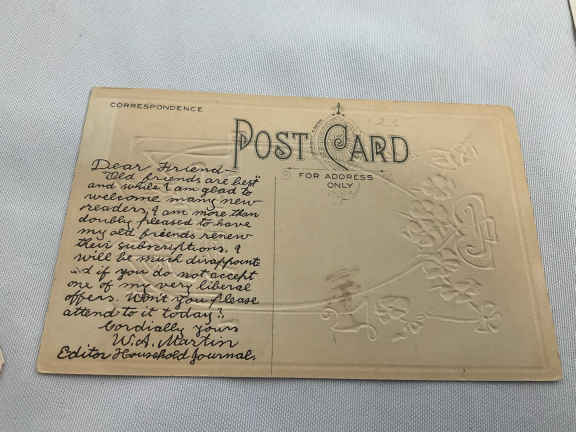 CORRESPONDENCE
POST CARD
FOR ADDRESS
ONLY
Dear Friend—
"Old friends are best"
and while I am glad to
welcome many new
readers, I am more than
doubly pleased to have
my old friends renew
their subscriptions. I
will be much disappoint-
ed if you do not accept
one of my very liberal
offers. Won't you please
attend to it today?
Cordially yours
W. A. Martin
Editor Household Journal.